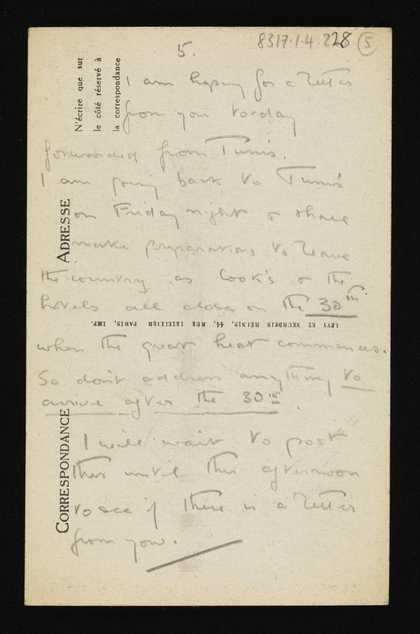 8317.1.4 228 5
5.
N'écrire que sur
le côté réservé à
la correspondance
I am hoping for a letter
from you today
forwarded from Tunis.
I am going back to Tunis
on Friday night & shall
make preparations to leave
the country as Cook's & the
hotels all close on the 30th
LEVY ET NEURDEIN RÉUNIS, 44, RUE LETELLIER PARIS, IMP.
when the great heat commences.
So don't address anything to
arrive after the 30th.
I will wait to post
this until this afternoon
to see if there is a letter
from you.
ADRESSE
CORRESPONDANCE